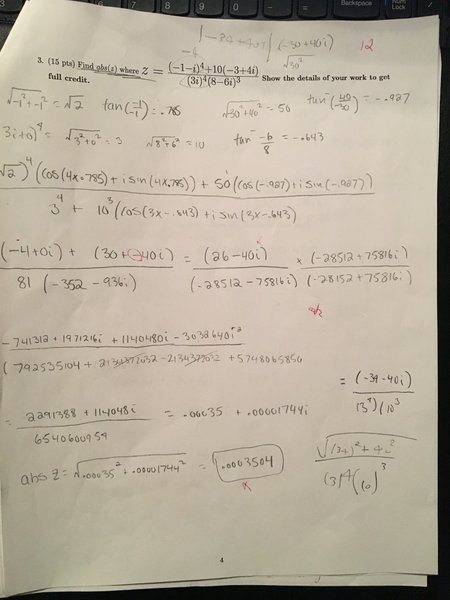 Backspace
Num
Lock
|-34+40i| (-30+40i)
-4
√30²
12
3. (15 pts) Find abs(z) where z = ((-1-i)^4+10(-3+4i))/((3i)^4(8-6i)^3) Show the details of your work to get
full credit.
√-1²+-1² = √2 tan(-1/-1) = .785 √30²+40² = 50 tan⁻(40/-30) = -.927
3i+0)⁴ = √3²+0² = 3 √8²+6² = 10 tan⁻ -6/8 = -.643
√2)⁴(cos(4x.785)+isin(4x.785)) + 50(cos(-.927)+isin(-.927))
3⁴ + 10³(cos(3x-.643)+isin(3x-.643)
(-4+0i) + (30+-40i) = (26-40i) × (-28512+75816i)
81 (-352-936i) (-28512-75816i) (-28152+75816i)
-741312+1971216i+1140480i-3032640i²
(792535104+2134372032-2134372032+5748065856
= (-34-40i)
(3⁴)(10³
= 2291388+114048i = .00035+.00001744i
6540600959
abs z = √.00035²+.00001744² = .0003504
√(34)²+4i²
(3)⁴(10)³
4